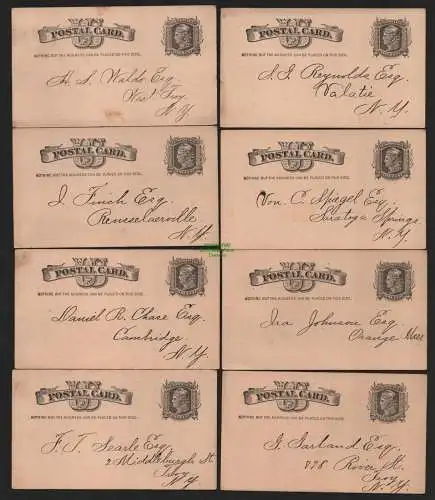 U.S.
POSTAL CARD.
NOTHING BUT THE ADDRESS CAN BE PLACED ON THIS SIDE.
H. S. Waldo Esq.
West Troy
N. Y.
U.S.
POSTAL CARD.
NOTHING BUT THE ADDRESS CAN BE PLACED ON THIS SIDE.
S. I. Reynolds, Esq.
Valatie
N. Y.
U.S.
POSTAL CARD.
NOTHING BUT THE ADDRESS CAN BE PLACED ON THIS SIDE.
J. Finch Esq
Rensselaerville
N. Y.
U.S.
POSTAL CARD.
NOTHING BUT THE ADDRESS CAN BE PLACED ON THIS SIDE.
Von. C. Spiegel Esq
Saratoga Springs
N. Y.
U.S.
POSTAL CARD.
NOTHING BUT THE ADDRESS CAN BE PLACED ON THIS SIDE.
Daniel R. Chase Esq.
Cambridge.
N. Y.
U.S.
POSTAL CARD.
NOTHING BUT THE ADDRESS CAN BE PLACED ON THIS SIDE.
Ira Johnson Esq
Orange Mass
U.S.
POSTAL CARD.
NOTHING BUT THE ADDRESS CAN BE PLACED ON THIS SIDE.
F. T. Searle Esq.
2 Middleburgh St
Troy
N. Y.
U.S.
POSTAL CARD.
NOTHING BUT THE ADDRESS CAN BE PLACED ON THIS SIDE.
J. Garland Esq.
River St
Troy
N. Y.